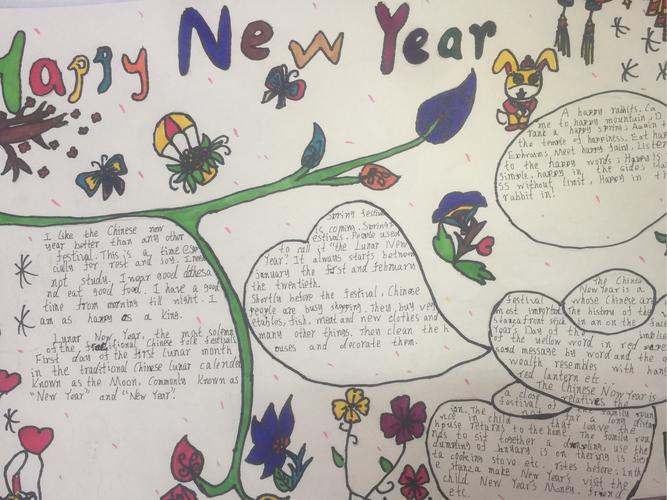 Happy New Year
I like the Chinese new
year better than any other
festival. This is a time espe
cially for rest and joy. I need
not study. I wear good clothes a
nd eat good food. I have a good
time from morning till night. I
am as happy as a king.
Lunar New Year, the most solemn
of the traditional Chinese folk festivals
First day of the first lunar month
in the traditional Chinese lunar calendar
Known as the Moon. Commonly known as
"New Year" and "New Year".
Spring festival
is coming. Spring
festivals. People used
to call it "the Lunar New
Year". It always starts between
January the first and february
the twentieth.
Shortly before the festival, Chinese
people are busy shopping. They buy veg
etables, fish, meat and new clothes and
many other things. Then clean the h
ouses and decorate them.
A happy rabbits. Ca
me to happy mountain, D
rank a happy spring, Again t
the temple of happiness. Eat ha
Ephraim, Meet happy fairy, Listen
to the happy words: Happy is
simple, happy in the side
ss without limit, Happy in t
rabbit in!
The Chinese
New Year is a
festival whose Chinese
most important The history of the
in an on the
Year's Day of the
of the yellow word in red paper
sand message by word and the
wealth resembles with hang
red lantern etc.
The Chinese New Year is
a close relatives the
festival of not family
for a long
nce in child that leave the
house returns to the home. The family
nds to sit together a dumpling, use the
dumpling of January is on
ta cooking stove etc. rites before. In th
e stanza make New Year's visit the
child New Year's Money
etc.